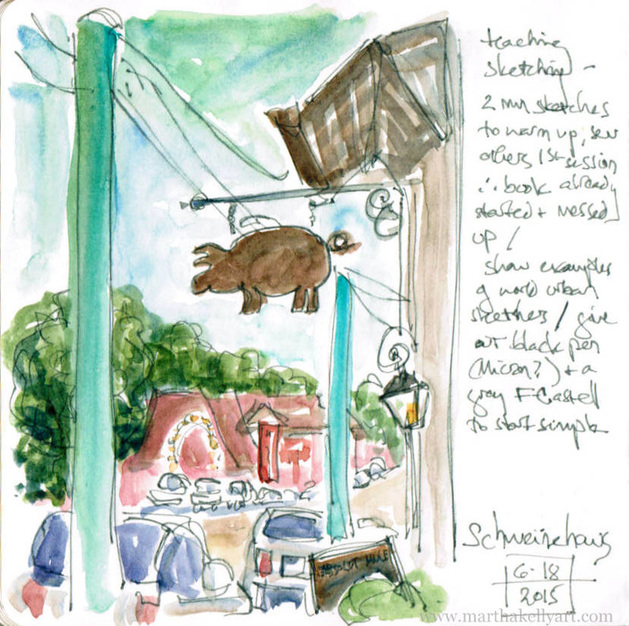 teaching
sketching -
2 min sketches
to warm up, sew
others 1st session
∴ book already
started + messed
up /
show examples
of world urban
sketchers / give
out black pen
(Micron?) + a
gray F Castell
to start simple
Schweinehaus
6·18
2015
www.marthakellyart.com